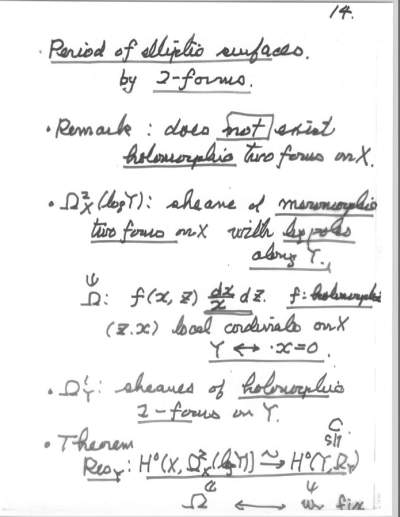 14.
· Period of elliptic surfaces.
by 2-forms.
· Remark : does not exist
holomorphic two forms on X.
· Ω²_X(log Y): sheave of meromorphic
two forms on X with log poles
along Y.
Ψ
Ω: f(x, z) dx/x dz. f: holomorphic
(z.x) local cordinate on X
Y ↔ ·x=0.
· Ω¹_Y: sheaves of holomorphic
1-forms on Y.
C
· Theorem
Res_Y: H⁰(X, Ω²_X(log Y)) ≃→ H⁰(Y, Ω_Y)
Ω ⟷ ω fix